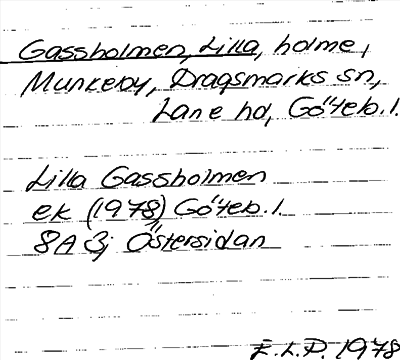 Gassholmen, Lilla, holme,
Munkeby, Dragsmarks sn,
Lane hd, Göteb. l.
Lilla Gassholmen
ek (1978) Göteb. l.
8A 3j Östersidan
E.L.P. 1978